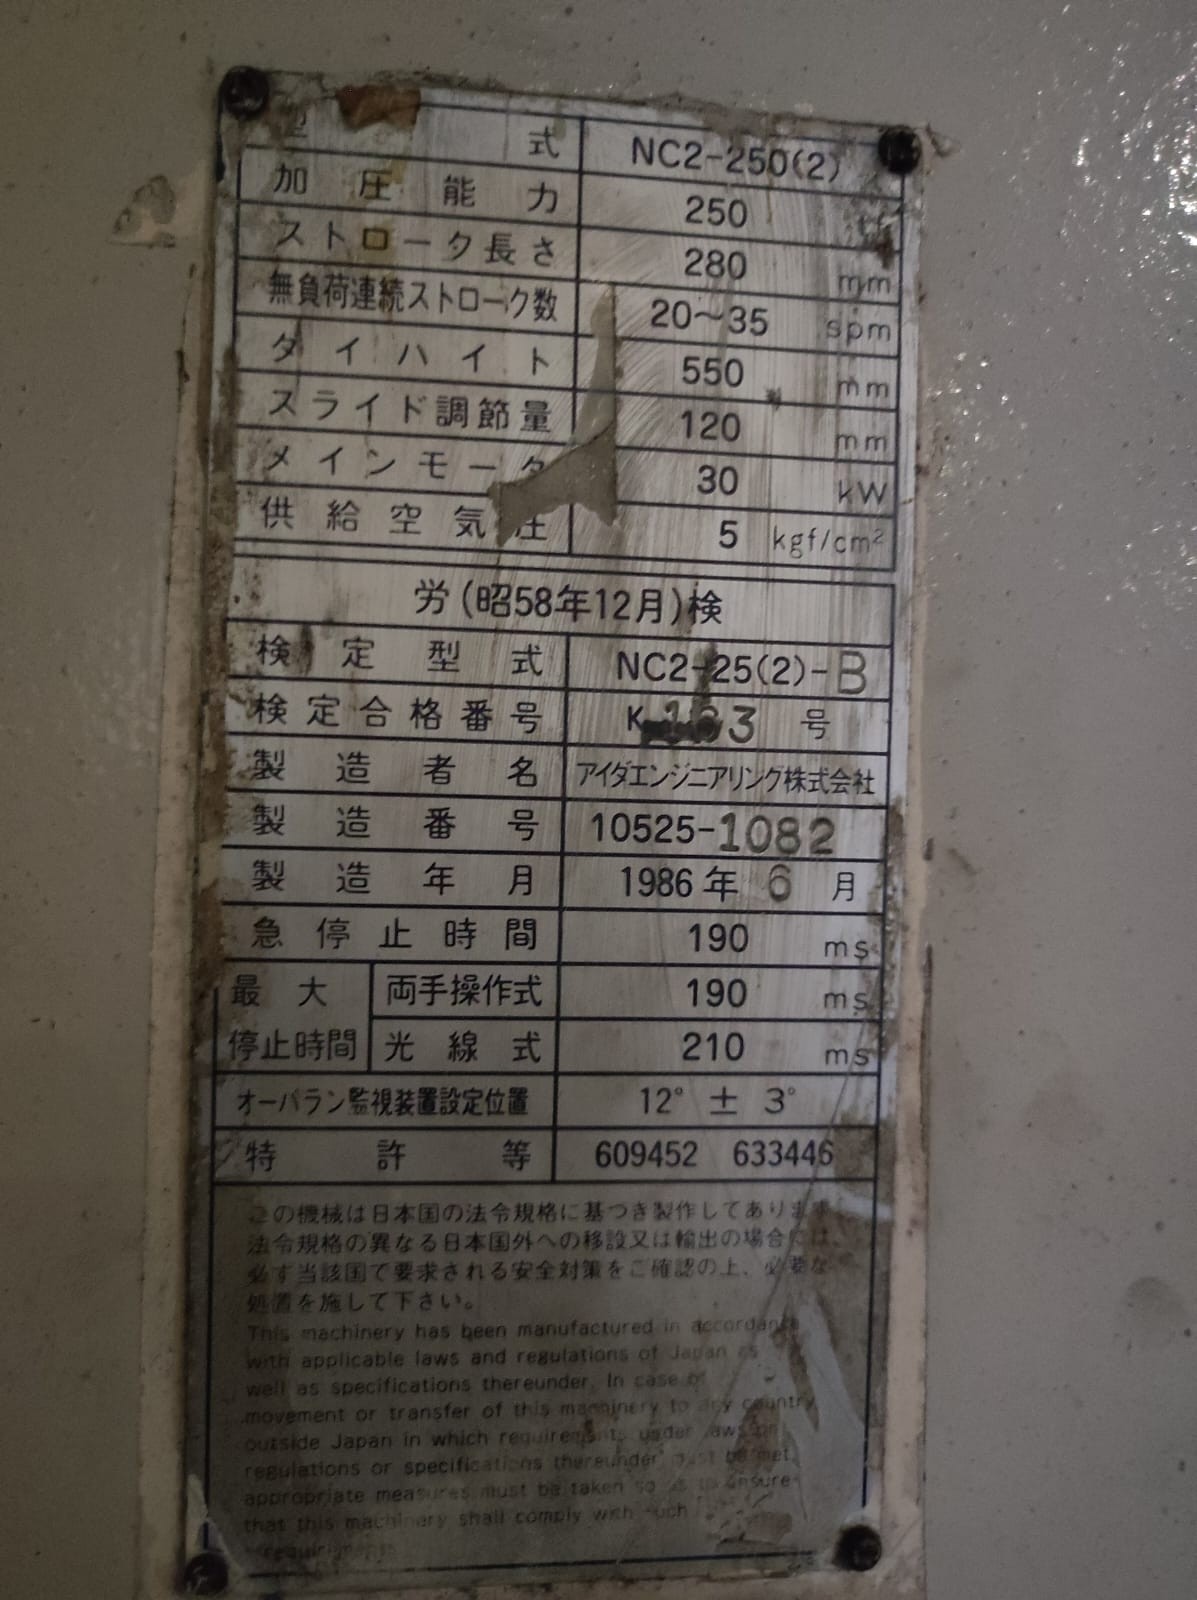 型 式 NC2-250(2)
加圧能力 250 tf
ストローク長さ 280 mm
無負荷連続ストローク数 20~35 spm
ダイハイト 550 mm
スライド調節量 120 mm
メインモータ 30 kW
供給空気圧 5 kgf/cm²
労(昭58年12月)検
検定型式 NC2-25(2)-B
検定合格番号 号
製造者名 アイダエンジニアリング株式会社
製造番号 10525-1082
製造年月 1986年 6 月
急停止時間 190 ms
最大停止時間 両手操作式 190 ms
光線式 210 ms
オーバラン監視装置設定位置 12° ± 3°
特許等 609452 633446
この機械は日本国の法令規格に基つき製作してあります
法令規格の異なる日本国外への移設又は輸出の場合には、
必す当該国て要求される安全対策をご確認の上、必要な
処置を施して下さい。
This machinery has been manufactured in accordance
with applicable laws and regulations of Japan as
well as specifications thereunder. In case of
movement or transfer of this machinery to any country
outside Japan in which requirements under laws or
regulations or specifications thereunder must be met,
appropriate measures must be taken so as to ensure
that this machinery shall comply with such
requirements